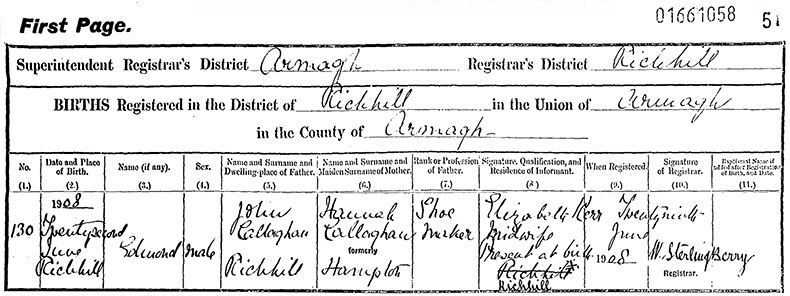 01661058 51
First Page.
Superintendent Registrar's District Armagh Registrar's District Richhill
BIRTHS Registered in the District of Richhill in the Union of Armagh
in the County of Armagh
No. Date and Place of Birth. Name (if any). Sex. Name and Surname and Dwelling-place of Father. Name and Surname and Maiden Surname of Mother. Rank or Profession of Father. Signature, Qualification, and Residence of Informant. When Registered. Signature of Registrar. Baptismal Name if added after Registration of Birth, and Date.
(1.) (2.) (3.) (4.) (5.) (6.) (7.) (8.) (9.) (10.) (11.)
130 1908 Twenty second June Richhill Edmond male John Callaghan Richhill Hannah Callaghan formerly Hampton Shoe maker Elizabeth Kerr Midwife Present at birth Richhill Richhill Twenty ninth June 1908 W. Sterling Berry Registrar.